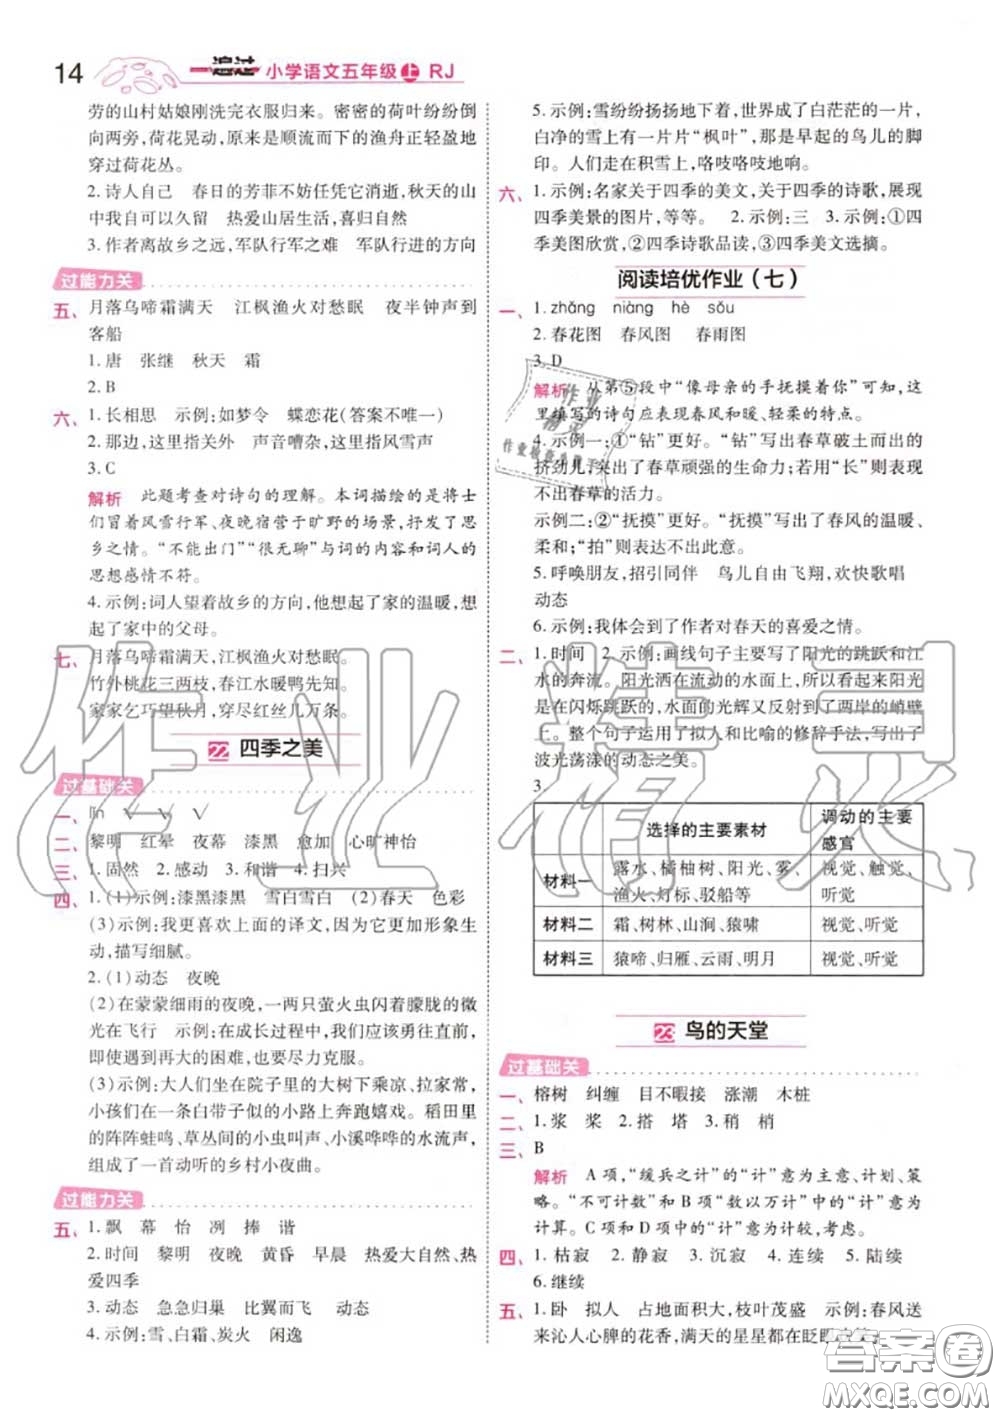 14 一遍过 小学语文五年级 上 RJ
劳的山村姑娘刚洗完衣服归来。密密的荷叶纷纷倒
向两旁,荷花晃动,原来是顺流而下的渔舟正轻盈地
穿过荷花丛。
2. 诗人自己 春日的芳菲不妨任凭它消逝,秋天的山
中我自可以久留 热爱山居生活,喜归自然
3. 作者离故乡之远,军队行军之难 军队行进的方向
过能力关
五、月落乌啼霜满天 江枫渔火对愁眠 夜半钟声到
客船
1. 唐 张继 秋天 霜
2. B
六、1. 长相思 示例:如梦令 蝶恋花(答案不唯一)
2. 那边,这里指关外 声音嘈杂,这里指风雪声
3. C
解析 此题考查对诗句的理解。本词描绘的是将士
们冒着风雪行军、夜晚宿营于旷野的场景,抒发了思
乡之情。“不能出门”“很无聊”与词的内容和词人的
思想感情不符。
4. 示例:词人望着故乡的方向,他想起了家的温暖,想
起了家中的父母。
七、月落乌啼霜满天,江枫渔火对愁眠。
竹外桃花三两枝,春江水暖鸭先知。
家家乞巧望秋月,穿尽红丝几万条。
22 四季之美
过基础关
一、lín √ √
二、黎明 红晕 夜幕 漆黑 愈加 心旷神怡
三、1. 固然 2. 感动 3. 和谐 4. 扫兴
四、1. (1)示例:漆黑漆黑 雪白雪白 (2)春天 色彩
(3)示例:我更喜欢上面的译文,因为它用词更形象生
动,描写细腻。
2. (1)动态 夜晚
(2)在蒙蒙细雨的夜晚,一两只萤火虫闪着朦胧的微
光在飞行 示例:在成长过程中,我们也要勇往直前,
即使遇到再大的困难,也要尽力克服。
(3)示例:大人们坐在院子里的大树下乘凉、拉家常,
孩子们在一条白带子似的小路上奔跑嬉戏。稻田里
的阵阵蛙鸣、草丛间的小虫叫声、小溪哗哗的水流声,
组成了一首动听的乡村小夜曲。
过能力关
五、1. 飘 幕 怡 冽 捧 谐
2. 时间 黎明 夜晚 黄昏 早晨 热爱大自然、热
爱四季
3. 动态 急急归巢 比翼而飞 动态
4. 示例:雪、白霜、炭火 闲逸
5. 示例:雪纷纷扬扬地下着,世界成了白茫茫的一片,
白净的雪上有一片片“枫叶”,那是早起的鸟儿的脚
印。人们走在积雪上,咯吱咯吱地响。
六、1. 示例:名家关于四季的美文,关于四季的诗歌,展现
四季美景的图片,等等。 2. 示例:三 3. 示例:①四
季美图欣赏,②四季诗歌品读,③四季美文选摘。
阅读培优作业(七)
一、1. zhǎng niàng hè sǒu
2. 春花图 春风图 春雨图
3. D
解析 从第⑤段中“像母亲的手抚摸着你”可知,这
里填写的诗句应表现春风和暖、轻柔的特点。
4. 示例一:①“钻”更好。“钻”写出春草破土而出的
挤劲儿,突出了春草顽强的生命力;若用“长”则表现
不出春草的活力。
示例二:②“抚摸”更好。“抚摸”写出了春风的温暖、
柔和;“拍”则表达不出此意。
5. 呼唤朋友,招引同伴 鸟儿自由飞翔,欢快歌唱
动态
6. 示例:我体会到了作者对春天的喜爱之情。
二、1. 时间 2. 示例:画线句子主要写了阳光的跳跃和江
水的奔流。阳光洒在流动的水面上,所以看起来阳光
是在闪烁跳跃的,水面的光辉又反射到了两岸的峭壁
上。整个句子运用了拟人和比喻的修辞手法,写出了
波光荡漾的动态之美。
3
选择的主要素材 调动的主要感官
材料一 露水、橘柚树、阳光、雾、渔火、灯标、驳船等 视觉、触觉、听觉
材料二 霜、树林、山涧、猿啸 视觉、听觉
材料三 猿啼、归雁、云雨、明月 视觉、听觉
23 鸟的天堂
过基础关
一、榕树 纠缠 目不暇接 涨潮 木桩
二、1. 浆 桨 2. 搭 塔 3. 稍 梢
三、B
解析 A项,“缓兵之计”的“计”意为主意、计划、策
略。“不可计数”和B项“数以万计”中的“计”意为
计算。C项和D项中的“计”意为计较,考虑。
四、1. 枯寂 2. 静寂 3. 沉寂 4. 连续 5. 陆续
6. 继续
五、1. 卧 拟人 占地面积大,枝叶茂盛 示例:春风送
来沁人心脾的花香,满天的星星都在眨眼
作业精灵
答案圈
MXQE.COM